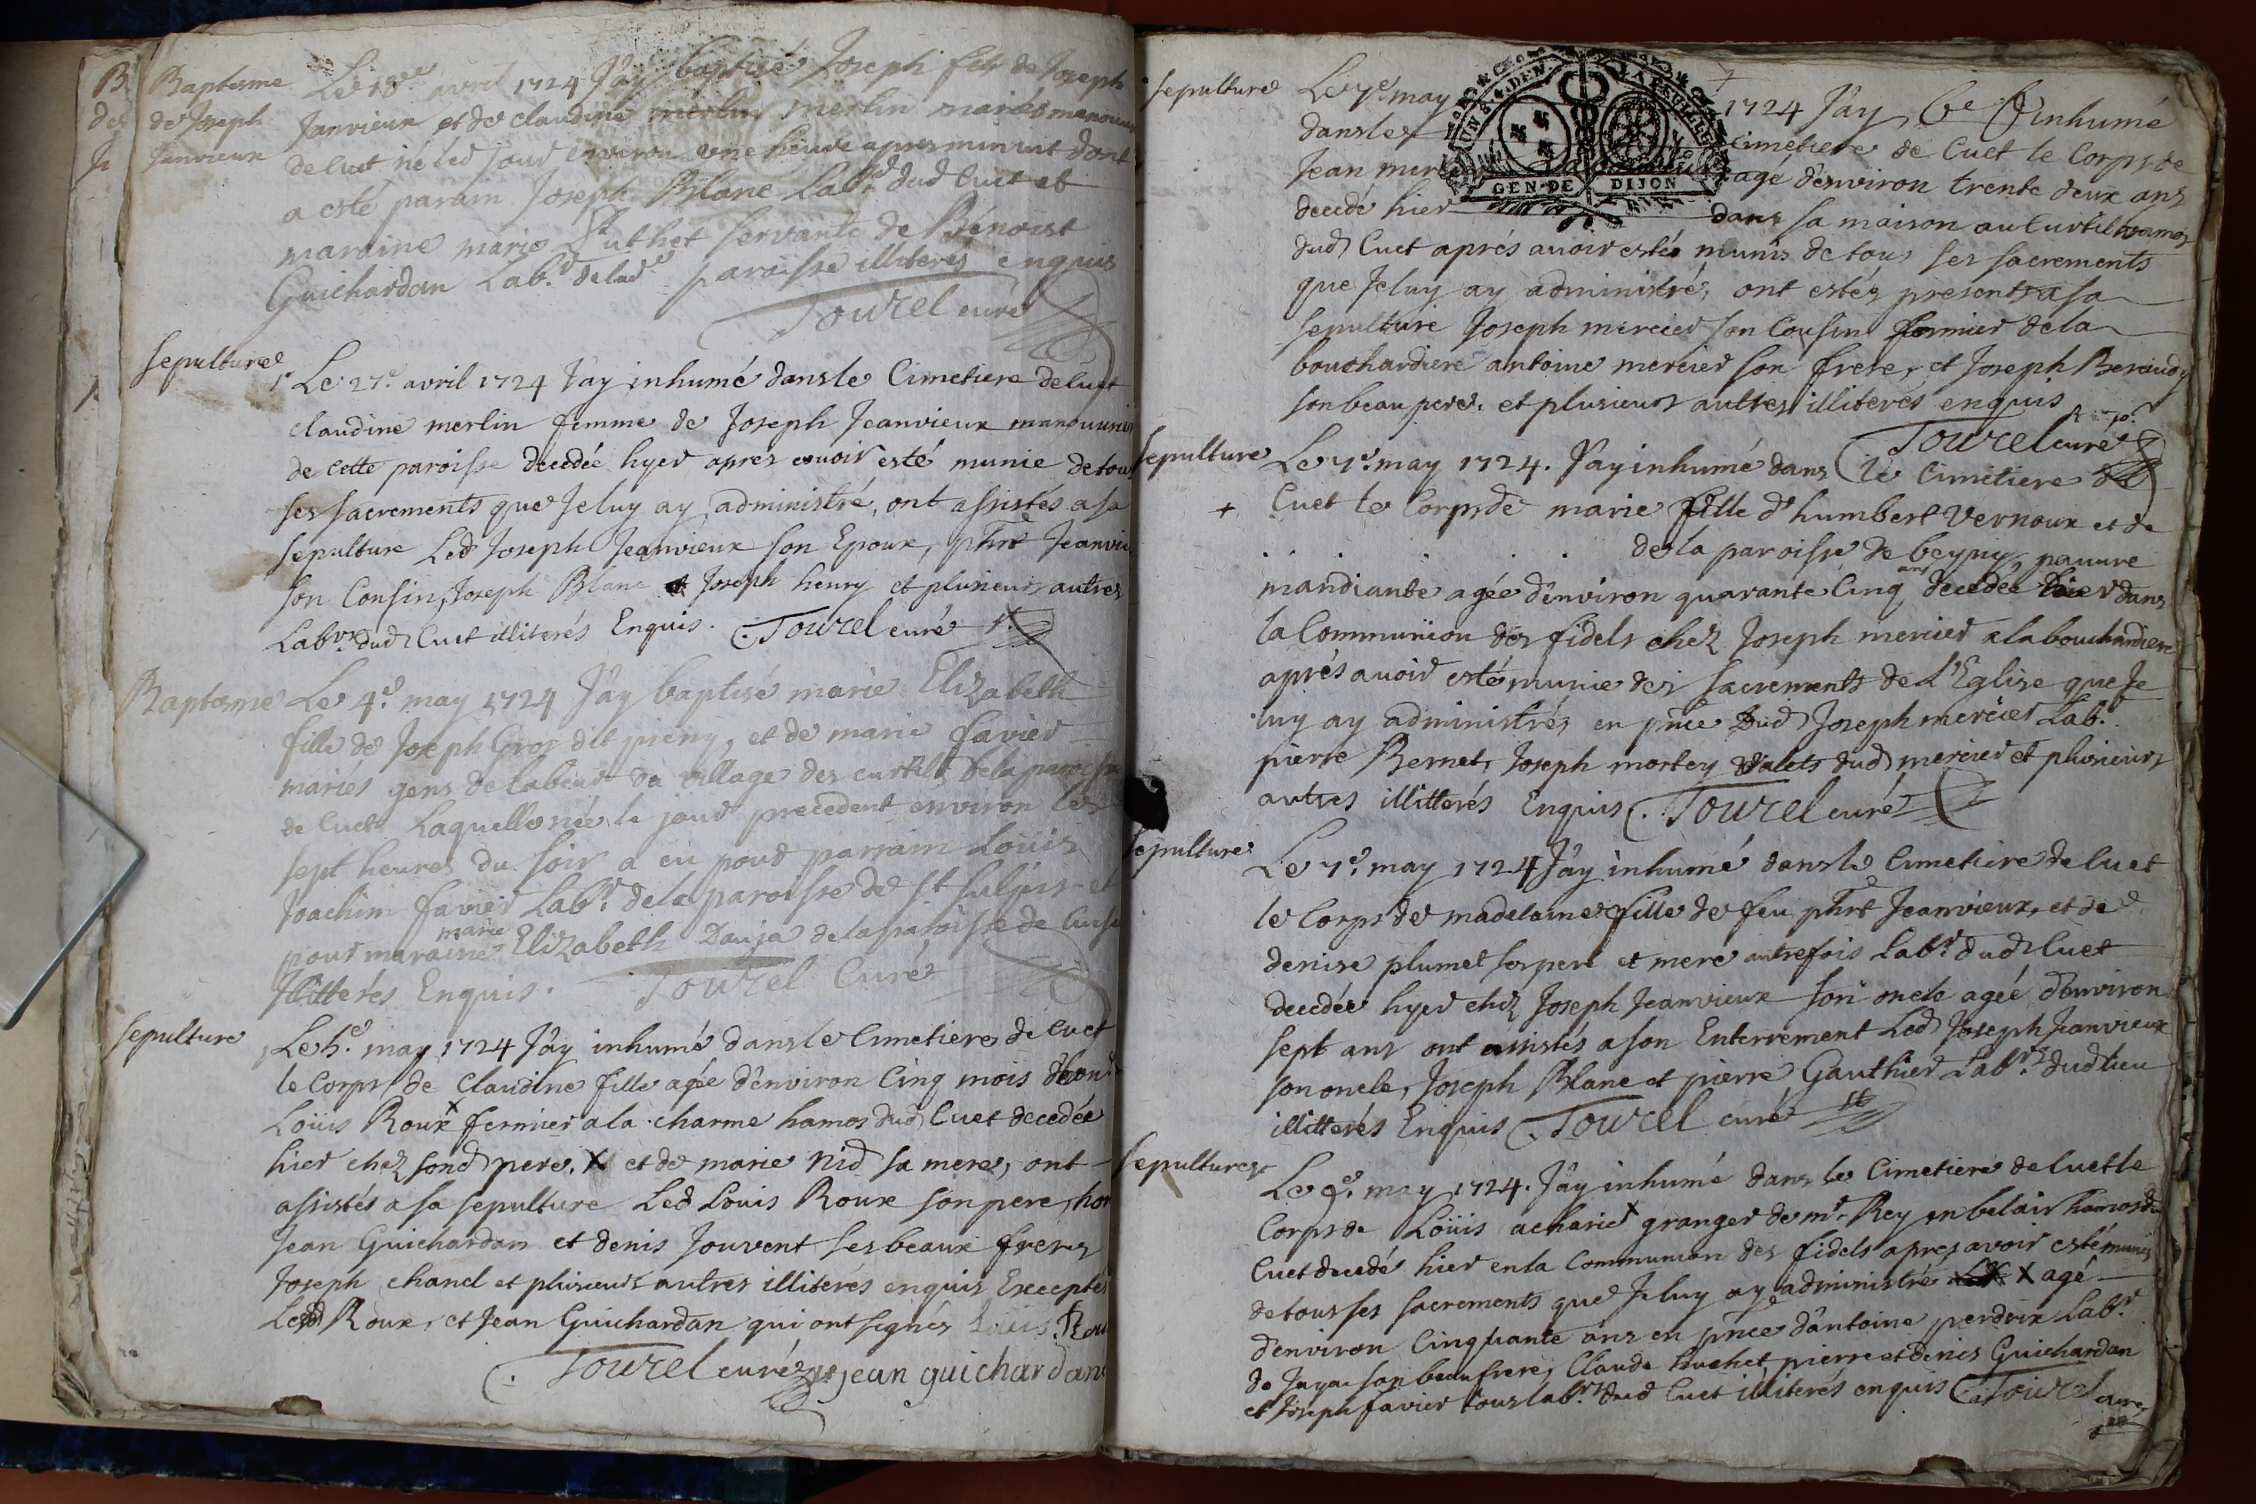 Baptesme
de Joseph
Janvieux
Le 18e avril 1724 J'ay baptisé Joseph fils de Joseph
Janvieux et de claudine merlin mariés manouv
de Cuet né led jour environ une heure apres minuit dont
a esté parain Joseph Blanc Labr. dud Cuet et
maraine marie Puthet servante de Bénoist
Guichardan Labr. de lad paroisse illiterés enquis
Tourel curé
sepulture
Le 27e avril 1724 J'ay inhumé dans le Cimetiere de Cuet
claudine merlin femme de Joseph Jeanvieux manouvrier
de cette paroisse decedée hyer aprés avoir esté munie de tous
ses sacrements que Je luy ay administré, ont assistés a sa
sepulture Led Joseph Jeanvieux son Epoux, phrt Jeanvie
son Cousin, Joseph Blanc et Joseph henry et plusieurs autres
Labrs. dud Cuet illiterés Enquis. Tourel curé
Baptesme
Le 4e. may 1724 J'ay baptisé marie Elizabeth
fille de Joseph Gros dit pieny, et de marie favier
mariés gens de labeur du village des curtils de la paroisse
de Cuet Laquelle née le jour precedent environ les
sept heures du soir a eu pour parrain Loüis
Joachim favier Labr. de la paroisse de st sulpis et
marie
pour maraine Elizabeth Dauja de la paroisse de
Illitterés Enquis. Tourel Curé
sepulture
Le 5e. may 1724 J'ay inhumé dans le Cimetiere de Cuet
le Corps de Claudine fille agée d'environ Cinq mois d'hon
Loüis Roux x fermier a la charme hamos dud Cuet decedée
hier chez sond pere, X et de marie nid sa mere, ont
assistés a sa sepulture Led Louis Roux son pere, hon
Jean Guichardan et denis Jouvent ses beaux freres
Joseph chanel et plusieurs autres illiterés enquis Exceptés
Led Roux, et Jean Guichardan qui ont signés Louis Rou
Tourel curé jean guichardan
sepulture
Le 7e may 1724 J'ay inhumé
dans le cimetiere de Cuet le Corps de
Jean mercier agé d'environ trente deux ans
decedé hier dans sa maison au Curtil hamos
dud Cuet aprés avoir estés munis de tous ses sacrements
que Je luy ay administré, ont estés presents a sa
sepulture Joseph mercier son Cousin fermier de la
bouchardiere antoine mercier son frere, et Joseph Beraud
son beau pere, et plusieurs autres illiterés enquis
Tourel curé
GEN·DE DIJON
sepulture
Le 7e. may 1724. J'ay inhumé dans le Cimetiere de
+ Cuet le Corps de marie fille d'humbert vernoux et de
. . . . . de la paroisse de beyny, pauvre
ans
mandiante agée d'environ quarante Cinq decedée hier dans
la Communion des fidels chez Joseph mercier a la bouchardiere
aprés avoir esté munie des sacrements de l'Eglise que Je
luy ay administrés en pnce dud Joseph mercier Labr.
pierre Bernet, Joseph mortey valets dud mercier et plusieurs
autres illitterés Enquis. Tourel curé
sepulture
Le 7e. may 1724 J'ay inhumé dans le Cimetiere de Cuet
le Corps de madelaine fille de feu phrt Jeanvieux, et de
denise plumet ses pere et mere autrefois Labr. dud Cuet
decedée hyer chez Joseph Jeanvieux son oncle agée d'environ
sept ans ont assistés a son Enterrement Led Joseph Jeanvieux
son oncle, Joseph Blanc et pierre Gauthier Labrs. dud lieu
illitterés Enquis Tourel curé
sepulture
Le 9e. may 1724. J'ay inhumé dans le Cimetiere de Cuet le
Corps de Loüis acharie x granger de mr. Rey en belair hamos de
Cuet decedé hier en la Communion des fidels aprez avoir esté munis
de tous ses sacrements que Je luy ay administré X agé
d'environ Cinquante ans en pnce d'antoine perdrix Labr.
de Jaya son beau frere, Claude huchet pierre et denis Guichardan
et Joseph favier tous labrs. dud Cuet illiterés enquis Tourel curé